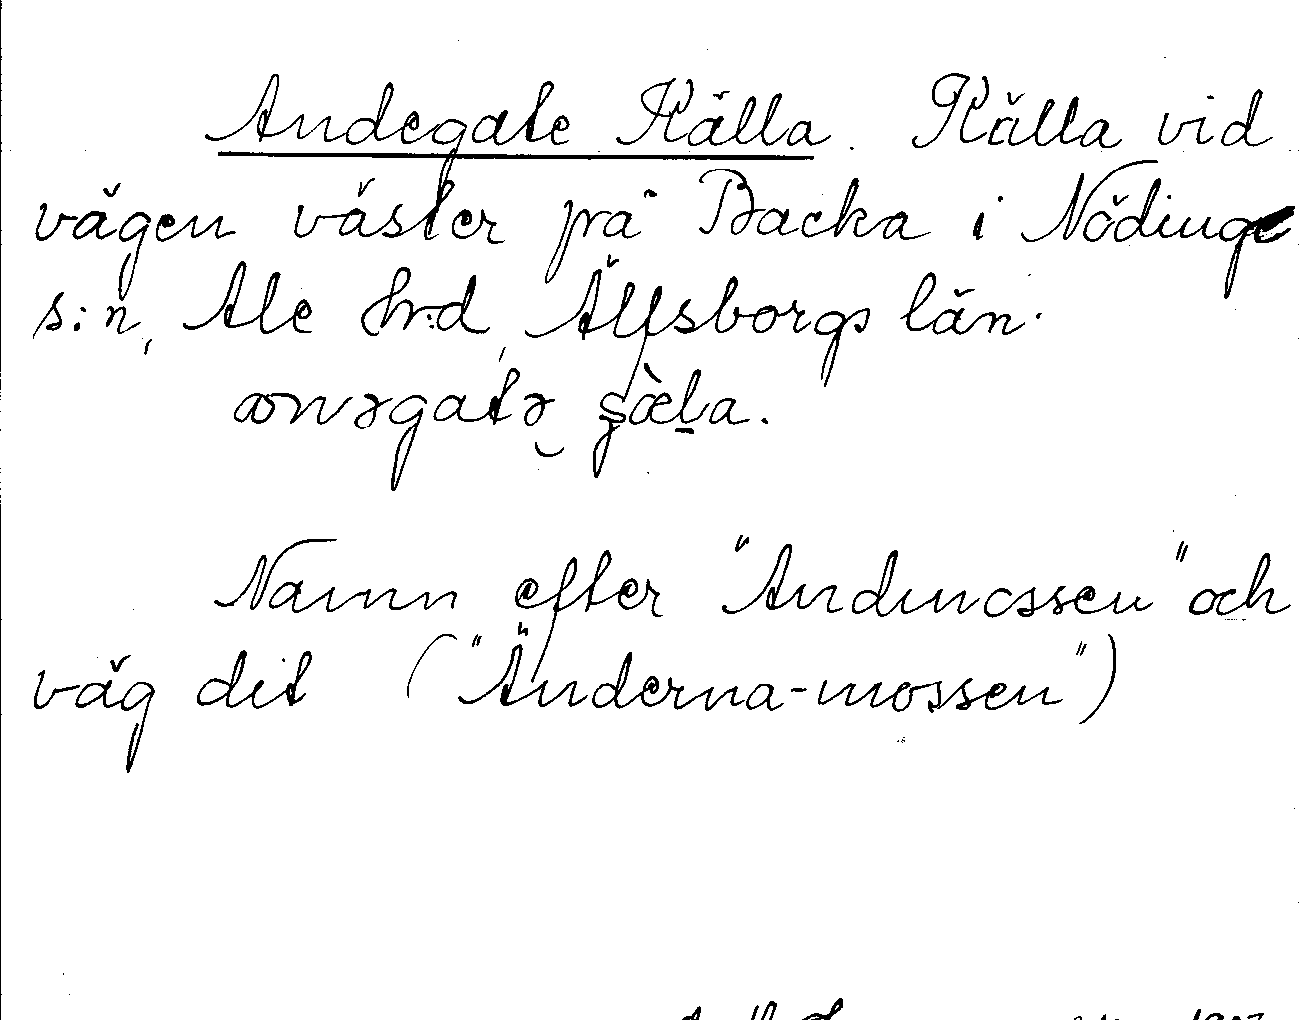 Andegate Källa. Källa vid
vägen väster på Backa i Nödinge
s:n, Ale hrd, Älfsborgs län.
Namn efter "Andmossen" och
väg dit ("Änderna-mossen")